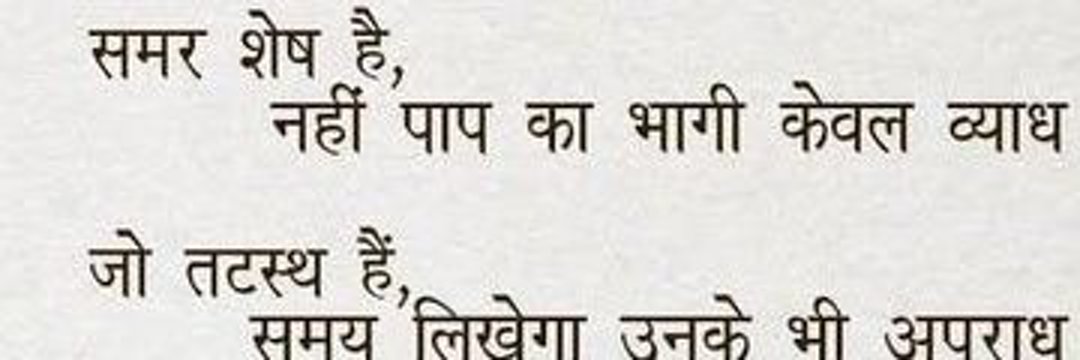 समर शेष है,
नहीं पाप का भागी केवल व्याध
जो तटस्थ हैं,
समय लिखेगा उनके भी अपराध